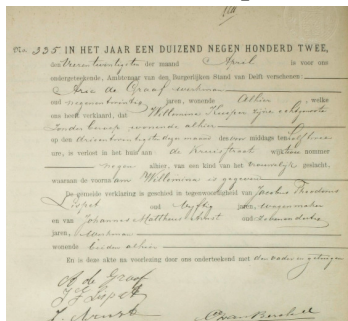 No. 335 IN HET JAAR EEN DUIZEND NEGEN HONDERD TWEE,
den vierentwintigsten der maand April is voor ons
ondergeteekende, Ambtenaar van den Burgerlijken Stand van Delft verschenen:
Arie de Graaf werkman
oud negenentwintig jaren, wonende Alhier, welke
ons heeft verklaard, dat Willemina Kuiper zijne echtgenoote
zonder beroep wonende alhier
op den drieentwintigsten dezer maand des middags ten
ure, is verlost in het huis aan de Kruisstraat wijk nummer
negen alhier, van een kind van het vrouwelijk geslacht,
waaraan de voornaam Willemina is gegeven
De gemelde verklaring is geschied in tegenwoordigheid van Jacobus Theodorus
Lispet oud vijftig jaren, wagenmaker
en van Johannes Mattheus Arnst oud zevenendertig
jaren, werkman
wonende beiden alhier
En is deze akte na voorlezing door ons onderteekend met den vader en getuigen
A de Graaf
J T Lispet
J. Arnst